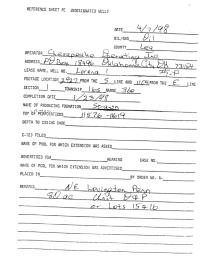 REFERENCE SHEET FC UNDESIGNATED WELLS
DATE 4/7/98
OIL/GAS Oil
COUNTY Lea
OPERATOR Chesapeake Operating Inc
ADDRESS PO Box 18496 Oklahoma City, OK 73154
LEASE NAME, WELL NO. Lorena 1
FOOTAGE LOCATION FROM THE S LINE AND FROM THE E LINE
SECTION 1 TOWNSHIP 16S RANGE 36E
COMPLETION DATE 1/23/98
NAME OF PRODUCING FOUNDATION Strawn
TOP OF PERFORATIONS 11576-11619
DEPTH TO CASING SHOE
C-123 FILED
NAME OF POOL FOR WHICH EXTENSION WAS ASKED
ADVERTISED FOR HEARING CASE NO.
NAME OF POOL FOR WHICH EXTENSION WAS ADVERTISED
PLACED IN BY ORDER NO. R-
REMARKS NE Lovington Penn
80 ac Unit
or Lots 15 & 16